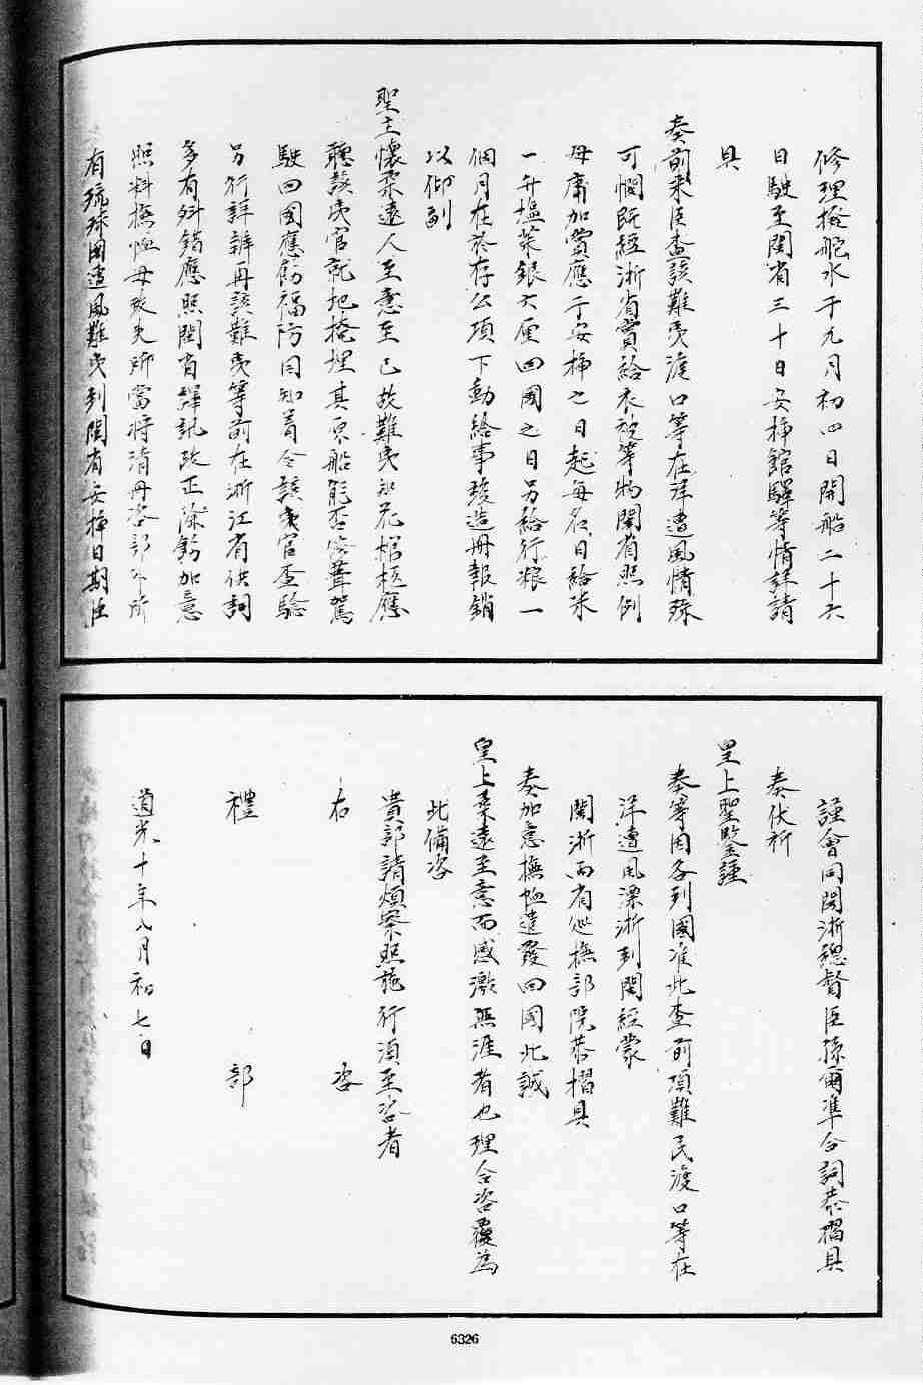 修理掩舵水于九月初四日開船二十六
日駛至閩省三十日安揷館驛等情詳請
具
奏前來臣查該難夷渡口等在洋遭風情殊
可憫既經浙省賞給衣被等物閩省照例
毋庸加賞應于安揷之日起每名日給米
一升塩菜銀六厘回國之日另給行粮一
個月在於存公項下動給事竣造冊報銷
以仰副
聖主懷柔遠人至意至已故難夷知花棺柩應
聽該夷官就地掩埋其原船能否修葺駕
駛回國應飭福防同知着令該夷官查驗
另行詳辦再該難夷等前在浙江省供詞
多有舛錯應照閩省譯訊改正除飭加意
照料撫恤毋致失所當將清冊咨部外所
有琉球國遭風難夷到閩省安揷日期臣
謹會同閩浙總督臣孫爾準合詞恭摺具
奏伏祈
皇上聖鑒謹
奏等因咨到國准此查前項難民渡口等在
洋遭風漂浙到閩經蒙
閩浙兩省廵撫部院恭摺具
奏加意撫恤遣發回國此誠
皇上柔遠至意而感激無涯者也理合咨覆為
此備咨
貴部請煩察照施行須至咨者
右 咨
禮 部
道光十年八月初七日
6326